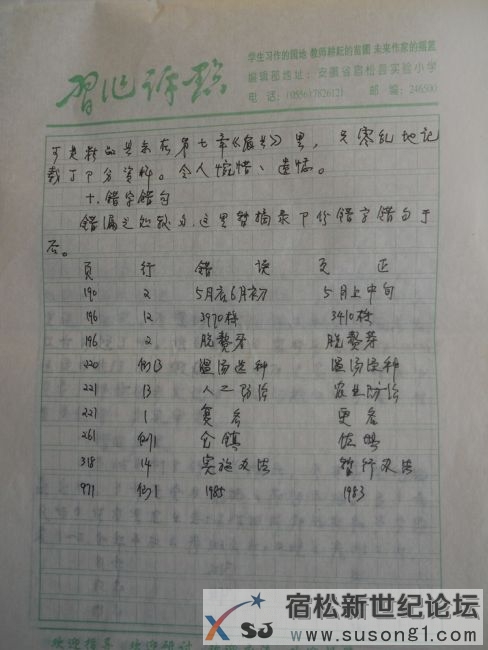 学生习作的园地 教师耕耘的苗圃 未来作家的摇篮
编辑部地址：安徽省宿松县实验小学
电 话：(0556)7826121 邮 编：246500
习作评点
在第七章《农业》里，只零乱地记
载了部分资料。令人惋惜、遗憾。
十、错字错句
错漏之处较多，这里要摘录部份错字错句于
后。
页 行 错误 更正
190 2 5月底6月初 5月上中旬
196 12 3970株 3410株
196 2 脱
220 倒13 温汤选种 温汤浸种
221 13 人工防治 农业防治
221 1
261 倒1
318 14 实施办法 暂行办法
971 倒1 1985 1983
欢迎指导 欢迎
宿松新世纪论坛
XSJ
www.susong1.com